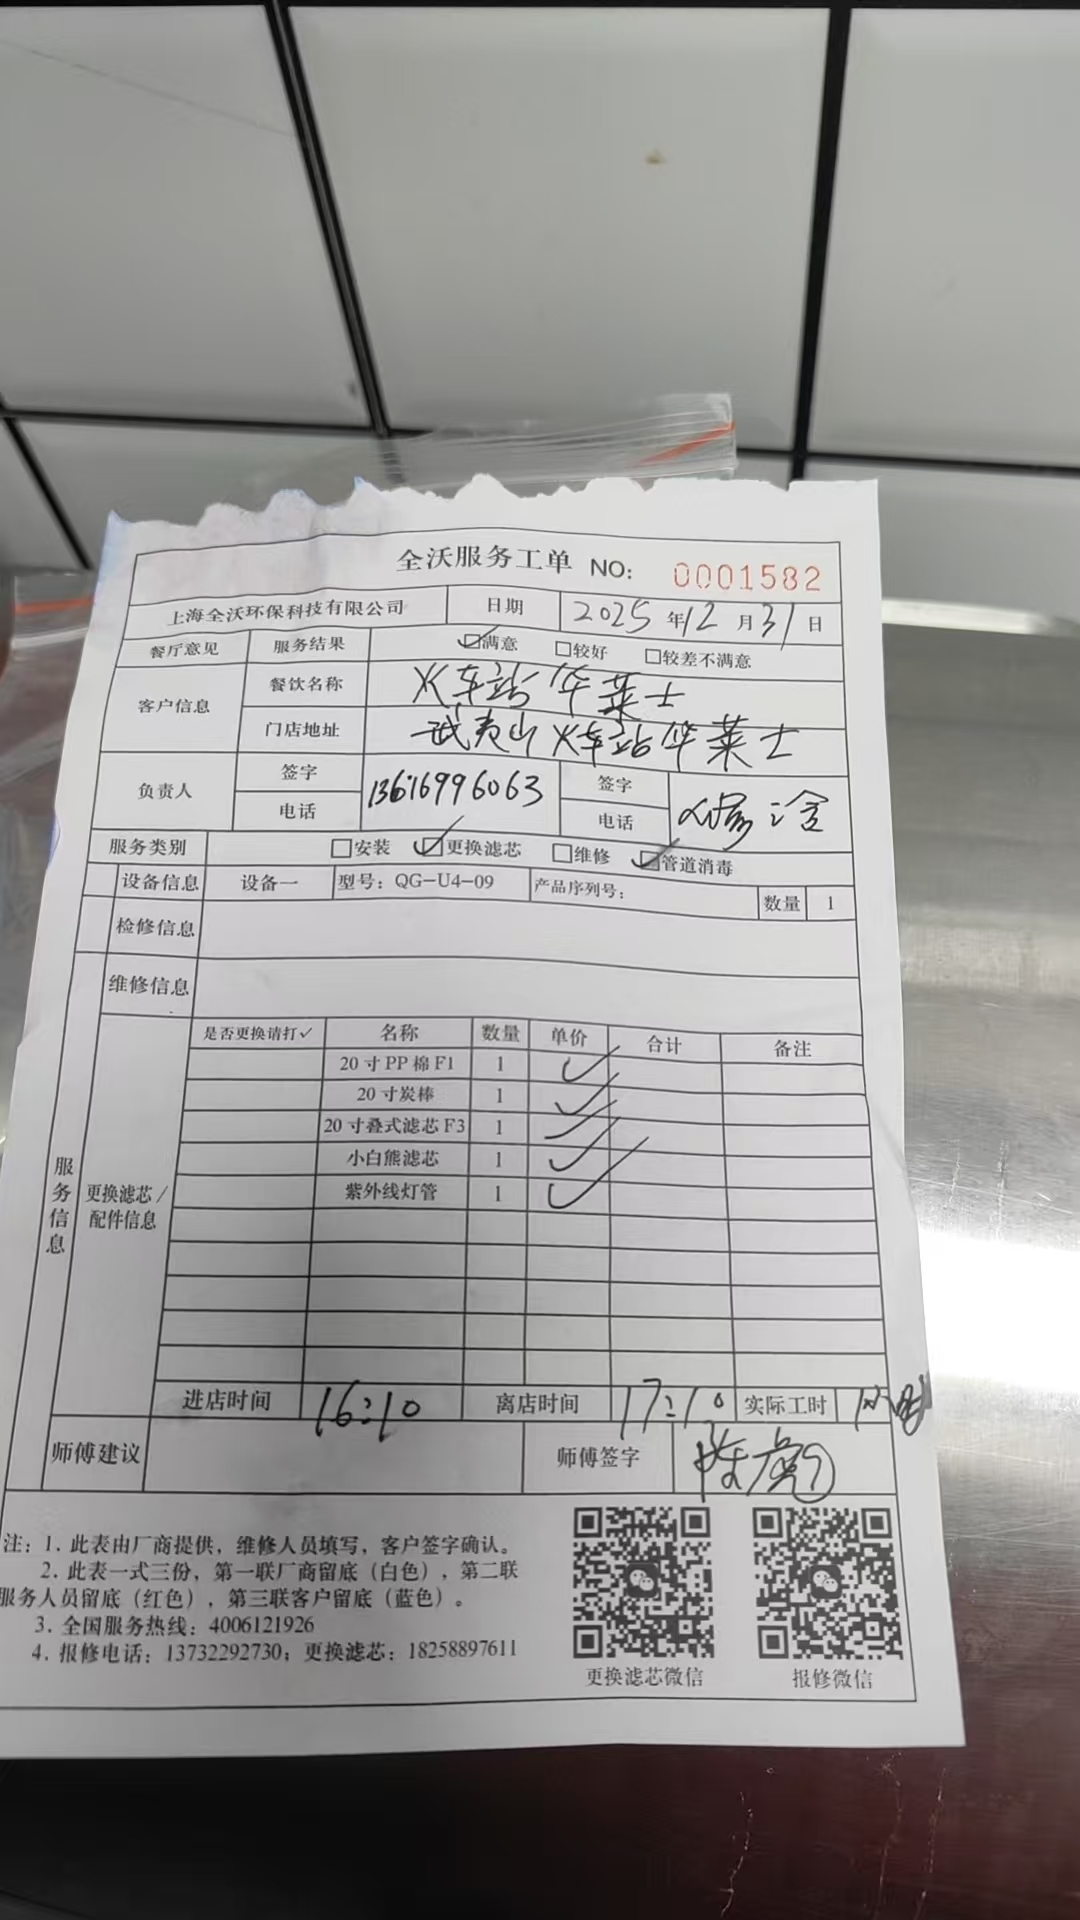 全沃服务工单 NO: 0001582
上海全沃环保科技有限公司 日期 2025 年 12 月 31 日
餐厅意见 服务结果 ☑满意 □较好 □较差不满意
客户信息 餐饮名称 火车站华莱士
门店地址 武夷山火车站华莱士
负责人 签字 电话 13616996063 签字 电话
服务类别 □安装 ☑更换滤芯 □维修 ☑管道消毒
设备信息 设备一 型号: QG-U4-09 产品序列号: 数量 1
检修信息
维修信息
服务信息 更换滤芯/配件信息
是否更换请打✓ 名称 数量 单价 合计 备注
20寸PP棉F1 1 ✓
20寸炭棒 1 ✓
20寸叠式滤芯F3 1 ✓
小白熊滤芯 1 ✓
紫外线灯管 1 ✓
进店时间 16:10 离店时间 17:10 实际工时
师傅建议 师傅签字
注: 1. 此表由厂商提供，维修人员填写，客户签字确认。
2. 此表一式三份，第一联厂商留底（白色），第二联
服务人员留底（红色），第三联客户留底（蓝色）。
3. 全国服务热线: 4006121926
4. 报修电话: 13732292730; 更换滤芯: 18258897611
更换滤芯微信 报修微信